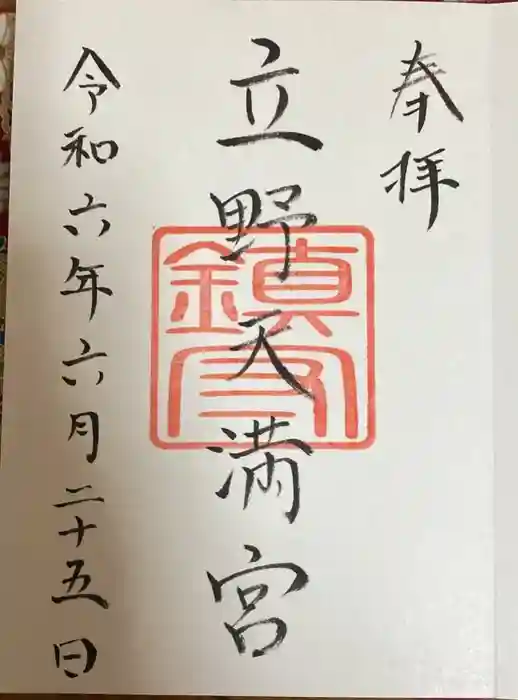 奉拝
立野天満宮
令和六年六月二十五日